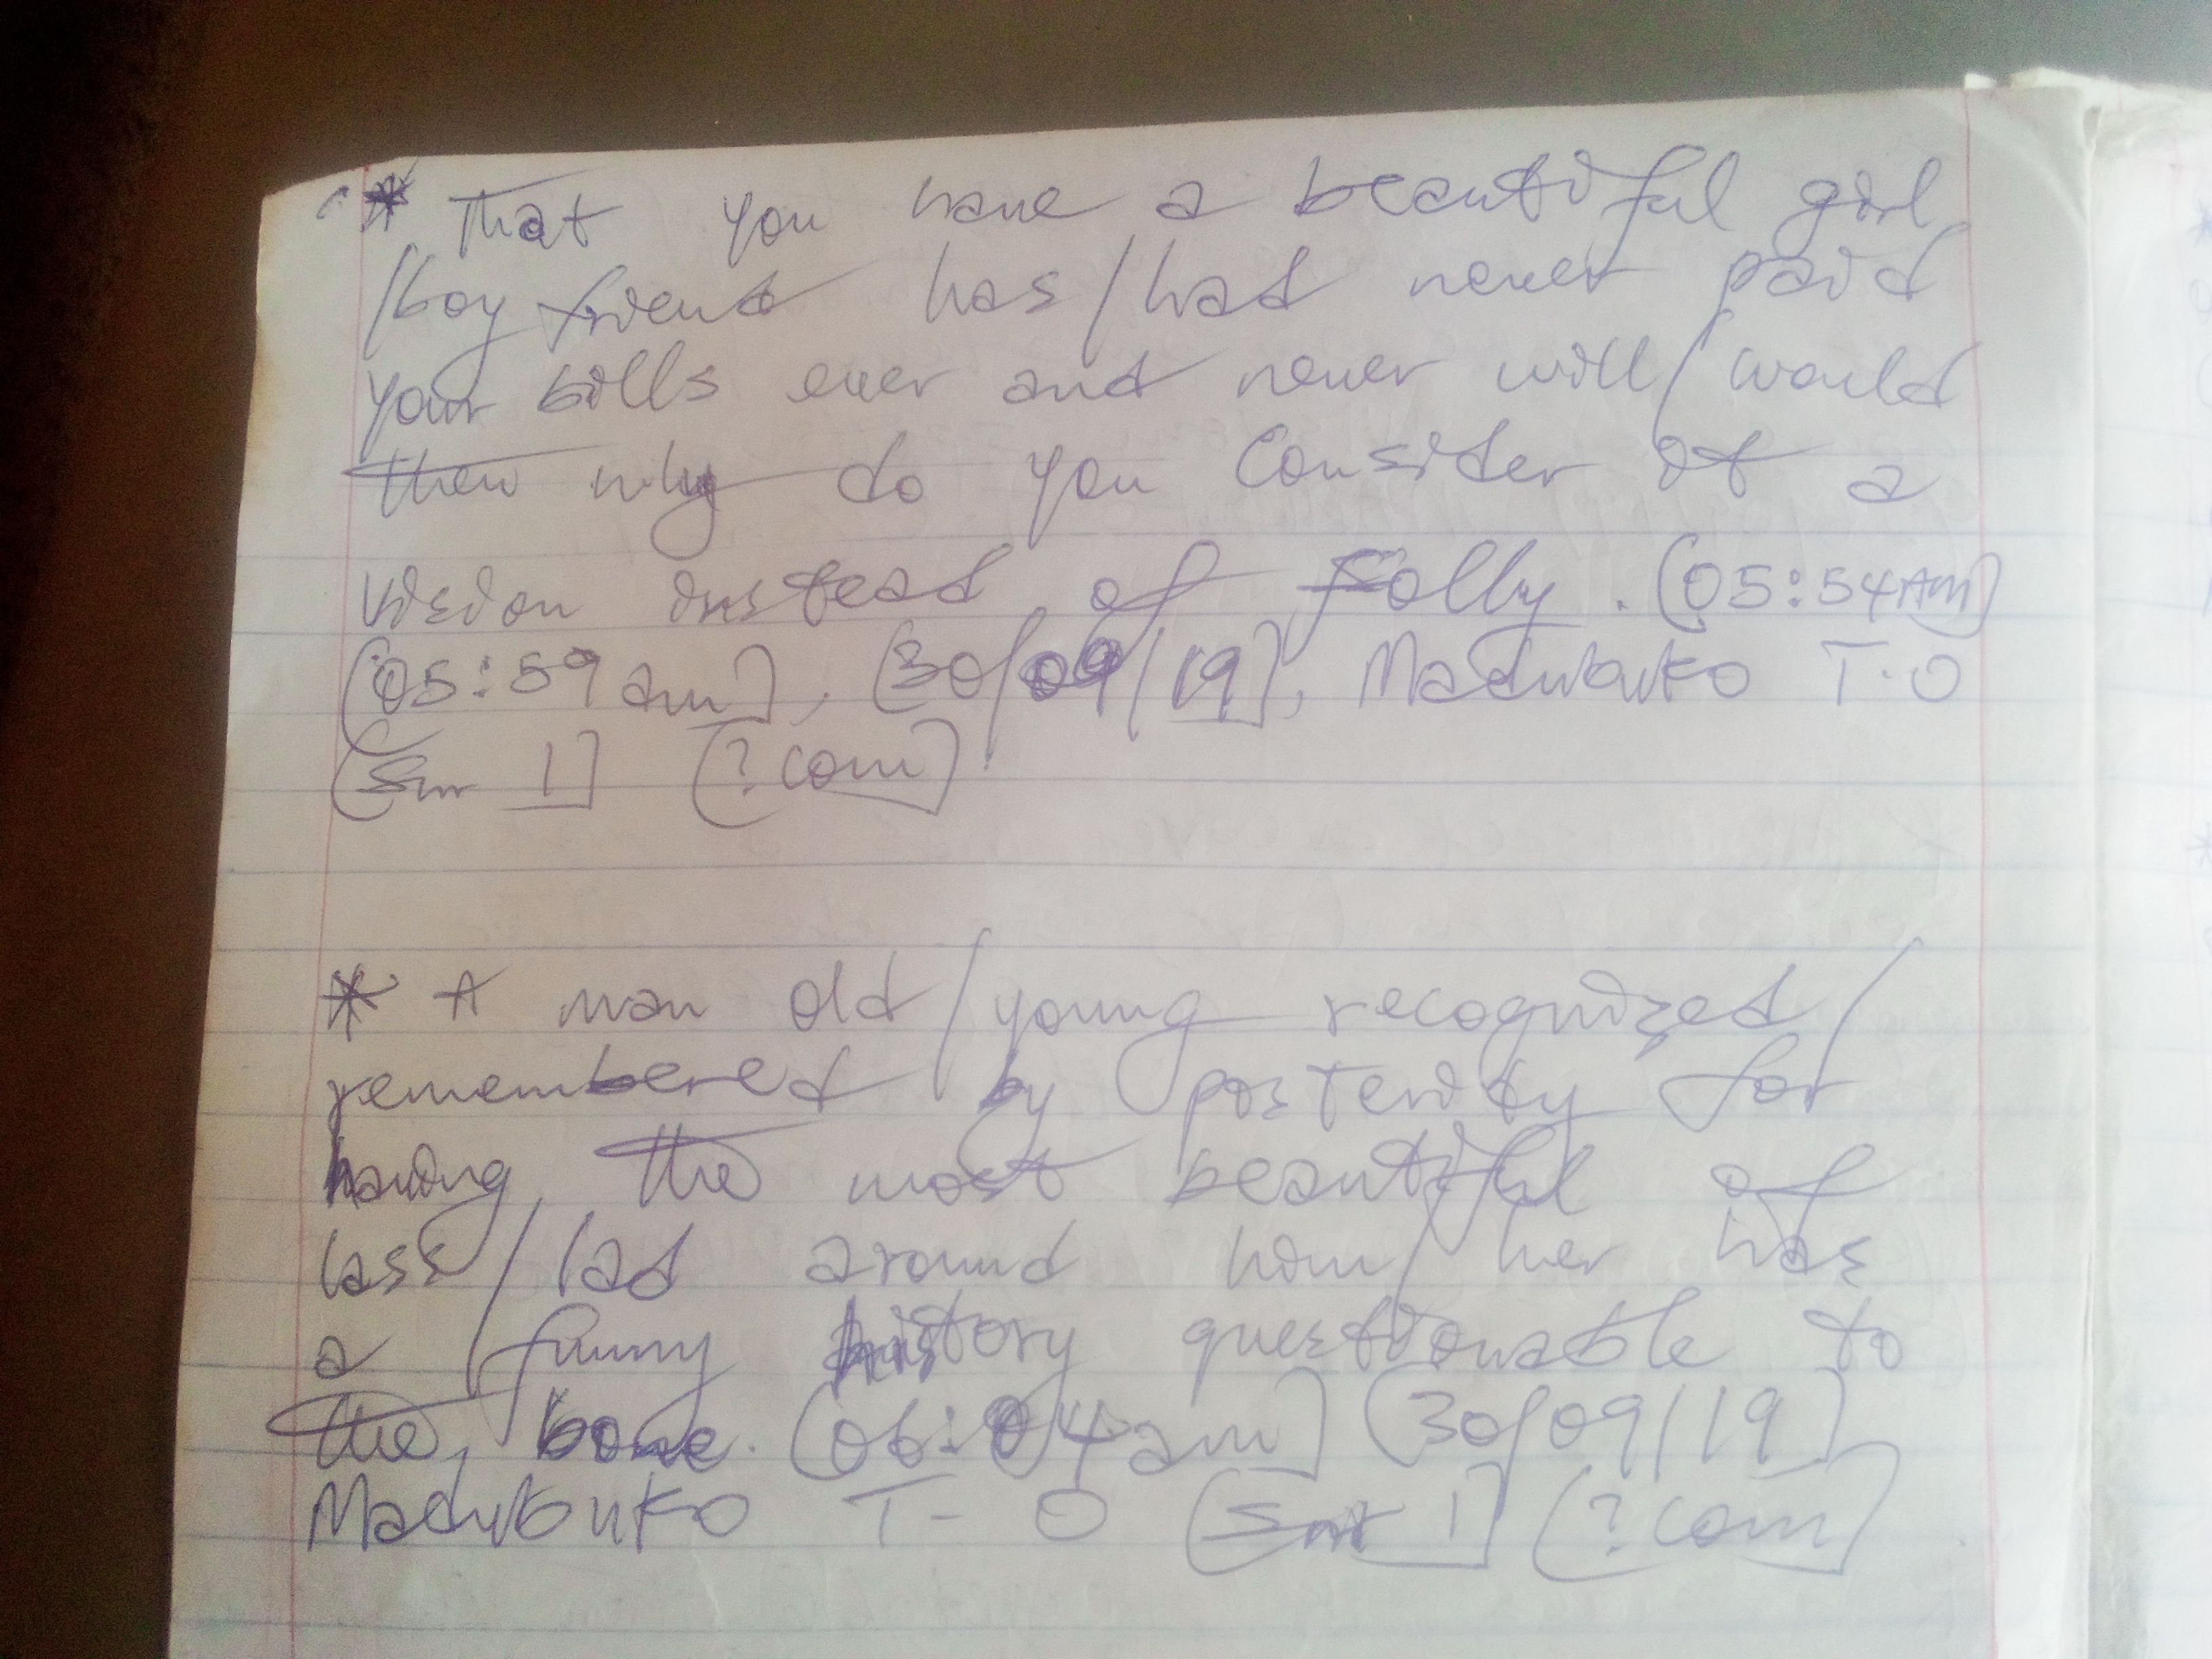 * That you have a beautiful girl
/boy friend has/had never paid
your bills ever and never will/would
then why do you consider it a
vision instead of folly. (05:54AM)
(05:59am), (30/09/19), Madubuko T.O
(Snr 1) (?com)
* A man old/young recognized/
remembered by posterity for
having the most beautiful of
lass/lad around him/her has
a funny history questionable to
the bone. (06:04am) (30/09/19)
Madubuko T-O (Snr 1) (?com)